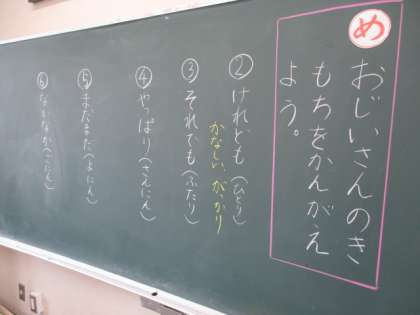 め
おじいさんのき
もちをかんがえ
よう。
②けれども(ひとり)
かなしい、がっかり
③それでも(ふたり)
④やっぱり(さんにん)
⑤まだまだ(よにん)
⑥なかなか(ごにん)